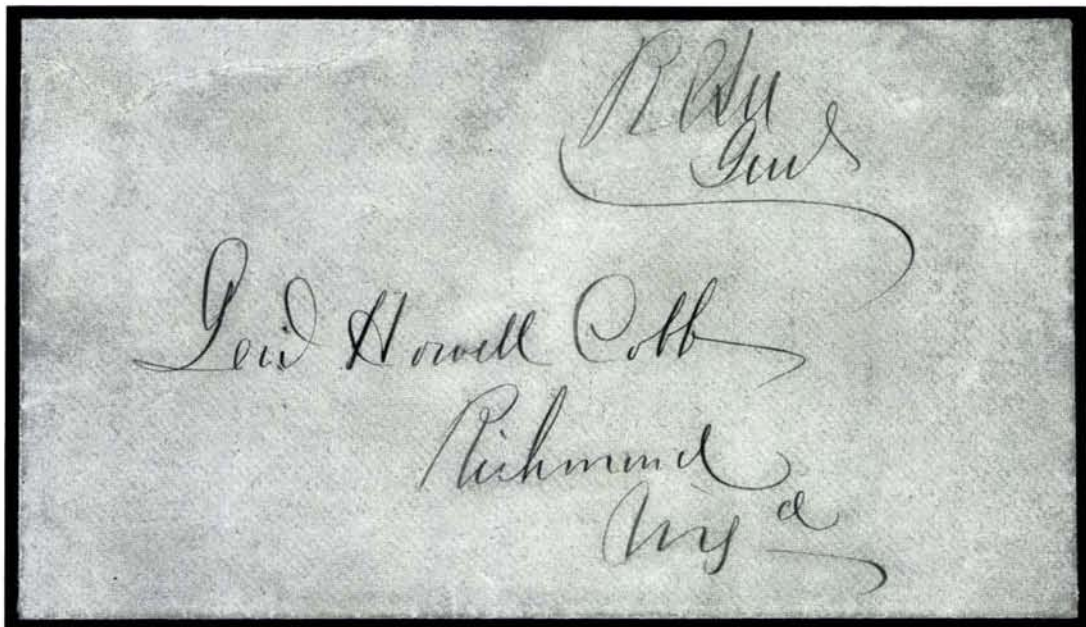 R E Lee
Genl
Genl Howell Cobb
Richmond
Virga